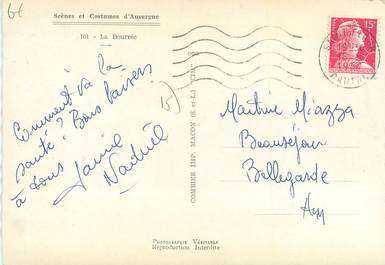 6€
Scènes et Costumes d'Auvergne
101 - La Bourrée
Comment va la
santé ? Bons baisers
à tous
COMBIER IMP. MACON (S.-et-L.) "CIM"
15F
Martine Miazza
Beauséjour
Bellegarde
Ain
Photographie Véritable
Reproduction Interdite